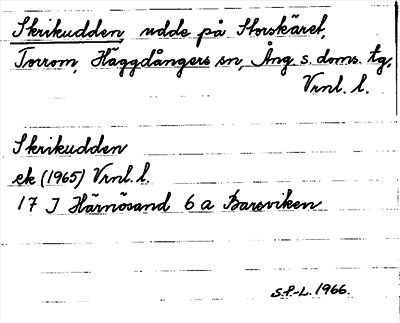 Skrikudden, udde på Storskäret,
Torrom, Häggdångers sn, Ång s. doms. tg,
Vrnl. l.
Skrikudden
ek (1965) Vrnl. l.
17 J Härnösand 6 a Barsviken
S.P.-L. 1966.